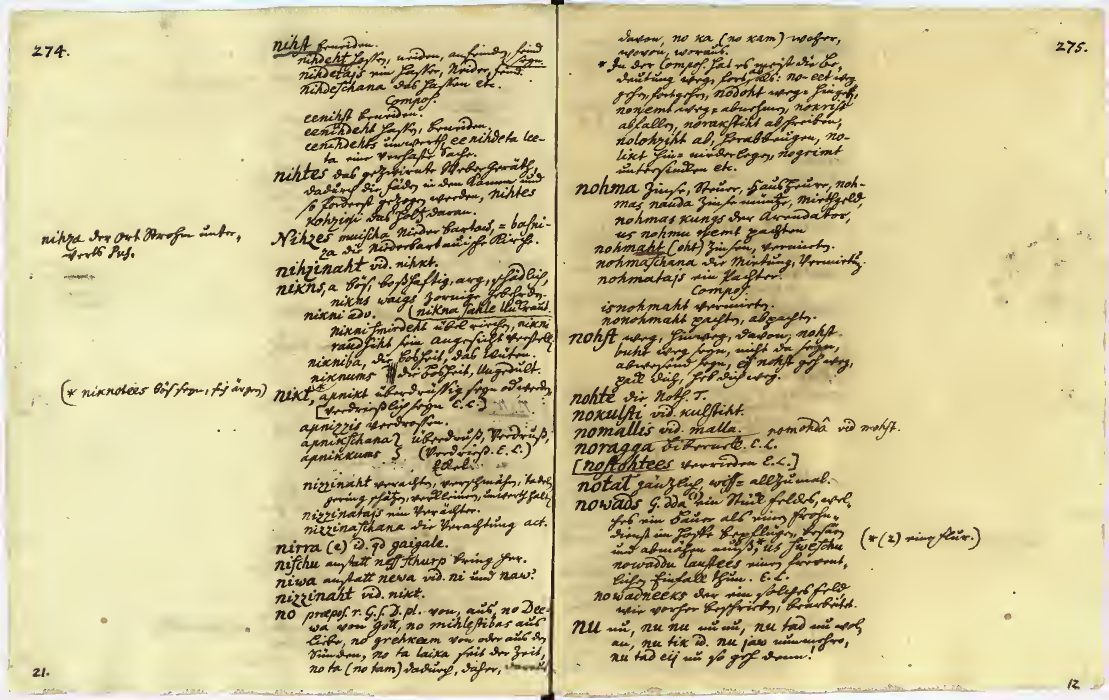 274.
nihst beneiden.
nihdeht hassen, neiden, anfeinden, feind seyn.
nihdetajs ein Hasser, Neider, feind.
nihdeschana das Hassen etc.
Compos.
eenihst beneiden.
eenihdeht hassen, beneiden.
eenihdehts unwerth, eenihdeta lee-
ta eine verhaste Sache.
nihtes das gezwirnte Weber Geräth,
dadurch die fäden in den Kämmen und
so forderst gezogen werden, nihtes
kohzini das Holtz daran.
nihza der Ort Strohm unter-
werts
Nihzes muischa Nieder Bartau, = basni-
za die Niederbartauische Kirche.
nihzinaht vid. nihkt.
nikns, a böse, boßhafftig, arg, schädlich,
nikns waigs zornige Geberden.
nikni adv. (nikna sahle Unkraut.
nikni smirdeht übel riechen, nikni
raudsiht sein Angesicht verstellen
nikniba, die Boßheit, das Wüten.
niknums die Boßheit, Ungedult.
(* niknotees böß seyn, sich ärgern)
nikt, apnikt überdrüssig seyn od werden
[verdrießlich seyn E. L.]
apnizzis verdrossen.
apnikschana } überdruß, Verdruß,
apnikkums } (Verdrieß. E. L.)
Ekel.
nizzinaht verachten, verschmähen, tadeln
gering schätzen, verkleinern, unwerth halten
nizzinatajs ein Verächter.
nizzinaschana die Verachtung act.
nirra (e) id. qd gaigale.
nischu anstatt ness schurp bring her.
niwa anstatt newa vid. ni und naw?
nizzinaht vid. nikt.
no præpos. r. G. s. D. pl. von, aus, no Dee-
wa von Gott, no mihlestibas aus
Liebe, no grehkeem von oder aus den
Sünden, no ta laika seit der Zeit,
no ta (no tam) dadurch, daher,
21.
275.
davon, no ka (no kam) woher,
wovon, woraus.
* In der Compos. hat es meist die Be-
deutung weg, fort, als: no-eet weg
gehen, fortgehen, nodoht weg = hingeben,
nonemt weg = abnehmen, nokrist
abfallen, norakstiht abschreiben,
nolohziht ab, herabbeugen, no-
likt hin = niederlegen, nogrimt
untersincken etc.
nohma Zinse, Steuer, Haußheuer, noh-
mas nauda Zinse müntze, Miethgeld,
nohmas kungs der Arrendator,
us nohmu nemt pachten
nohmaht (oht) Zinsen, vermieten.
nohmaschana die Mietung, Vermietung.
nohmatajs ein Pachter.
Compos.
isnohmaht vermieten.
nonohmaht pachten, abpachten.
nohst weg, hinweg, davon, nohst
buht weg seyn, nicht da seyn,
abwesend seyn, ej nohst geh weg,
pack dich, heb dich weg.
nohte die Noth. T.
nokulsti vid. kulstiht.
nomallis vid. malla. nomohda vid mohst.
noragga Bibernell. E. L.
[noskohtees verrieden E. L.]
notal gäntzlich, wiss = allzumal.
nowads G. dda ein Stück feldes, wel-
ches ein Bauer als einen Frohn-
dienst im Hoffe bepflügen, besäen
und abmähen muß,* us sweschu
nowaddu laustees einen frevent-
lichen Einfall thun. E. L.
(* (2) eine flur.)
nowadneeks der ein solches feld
wie vorher beschrieben, bearbeitet.
nu nu, nu nu nu nu, nu tad nu wol
an, nu tik id. nu jaw nunmehro,
nu tad eij nu so geh denn.
12